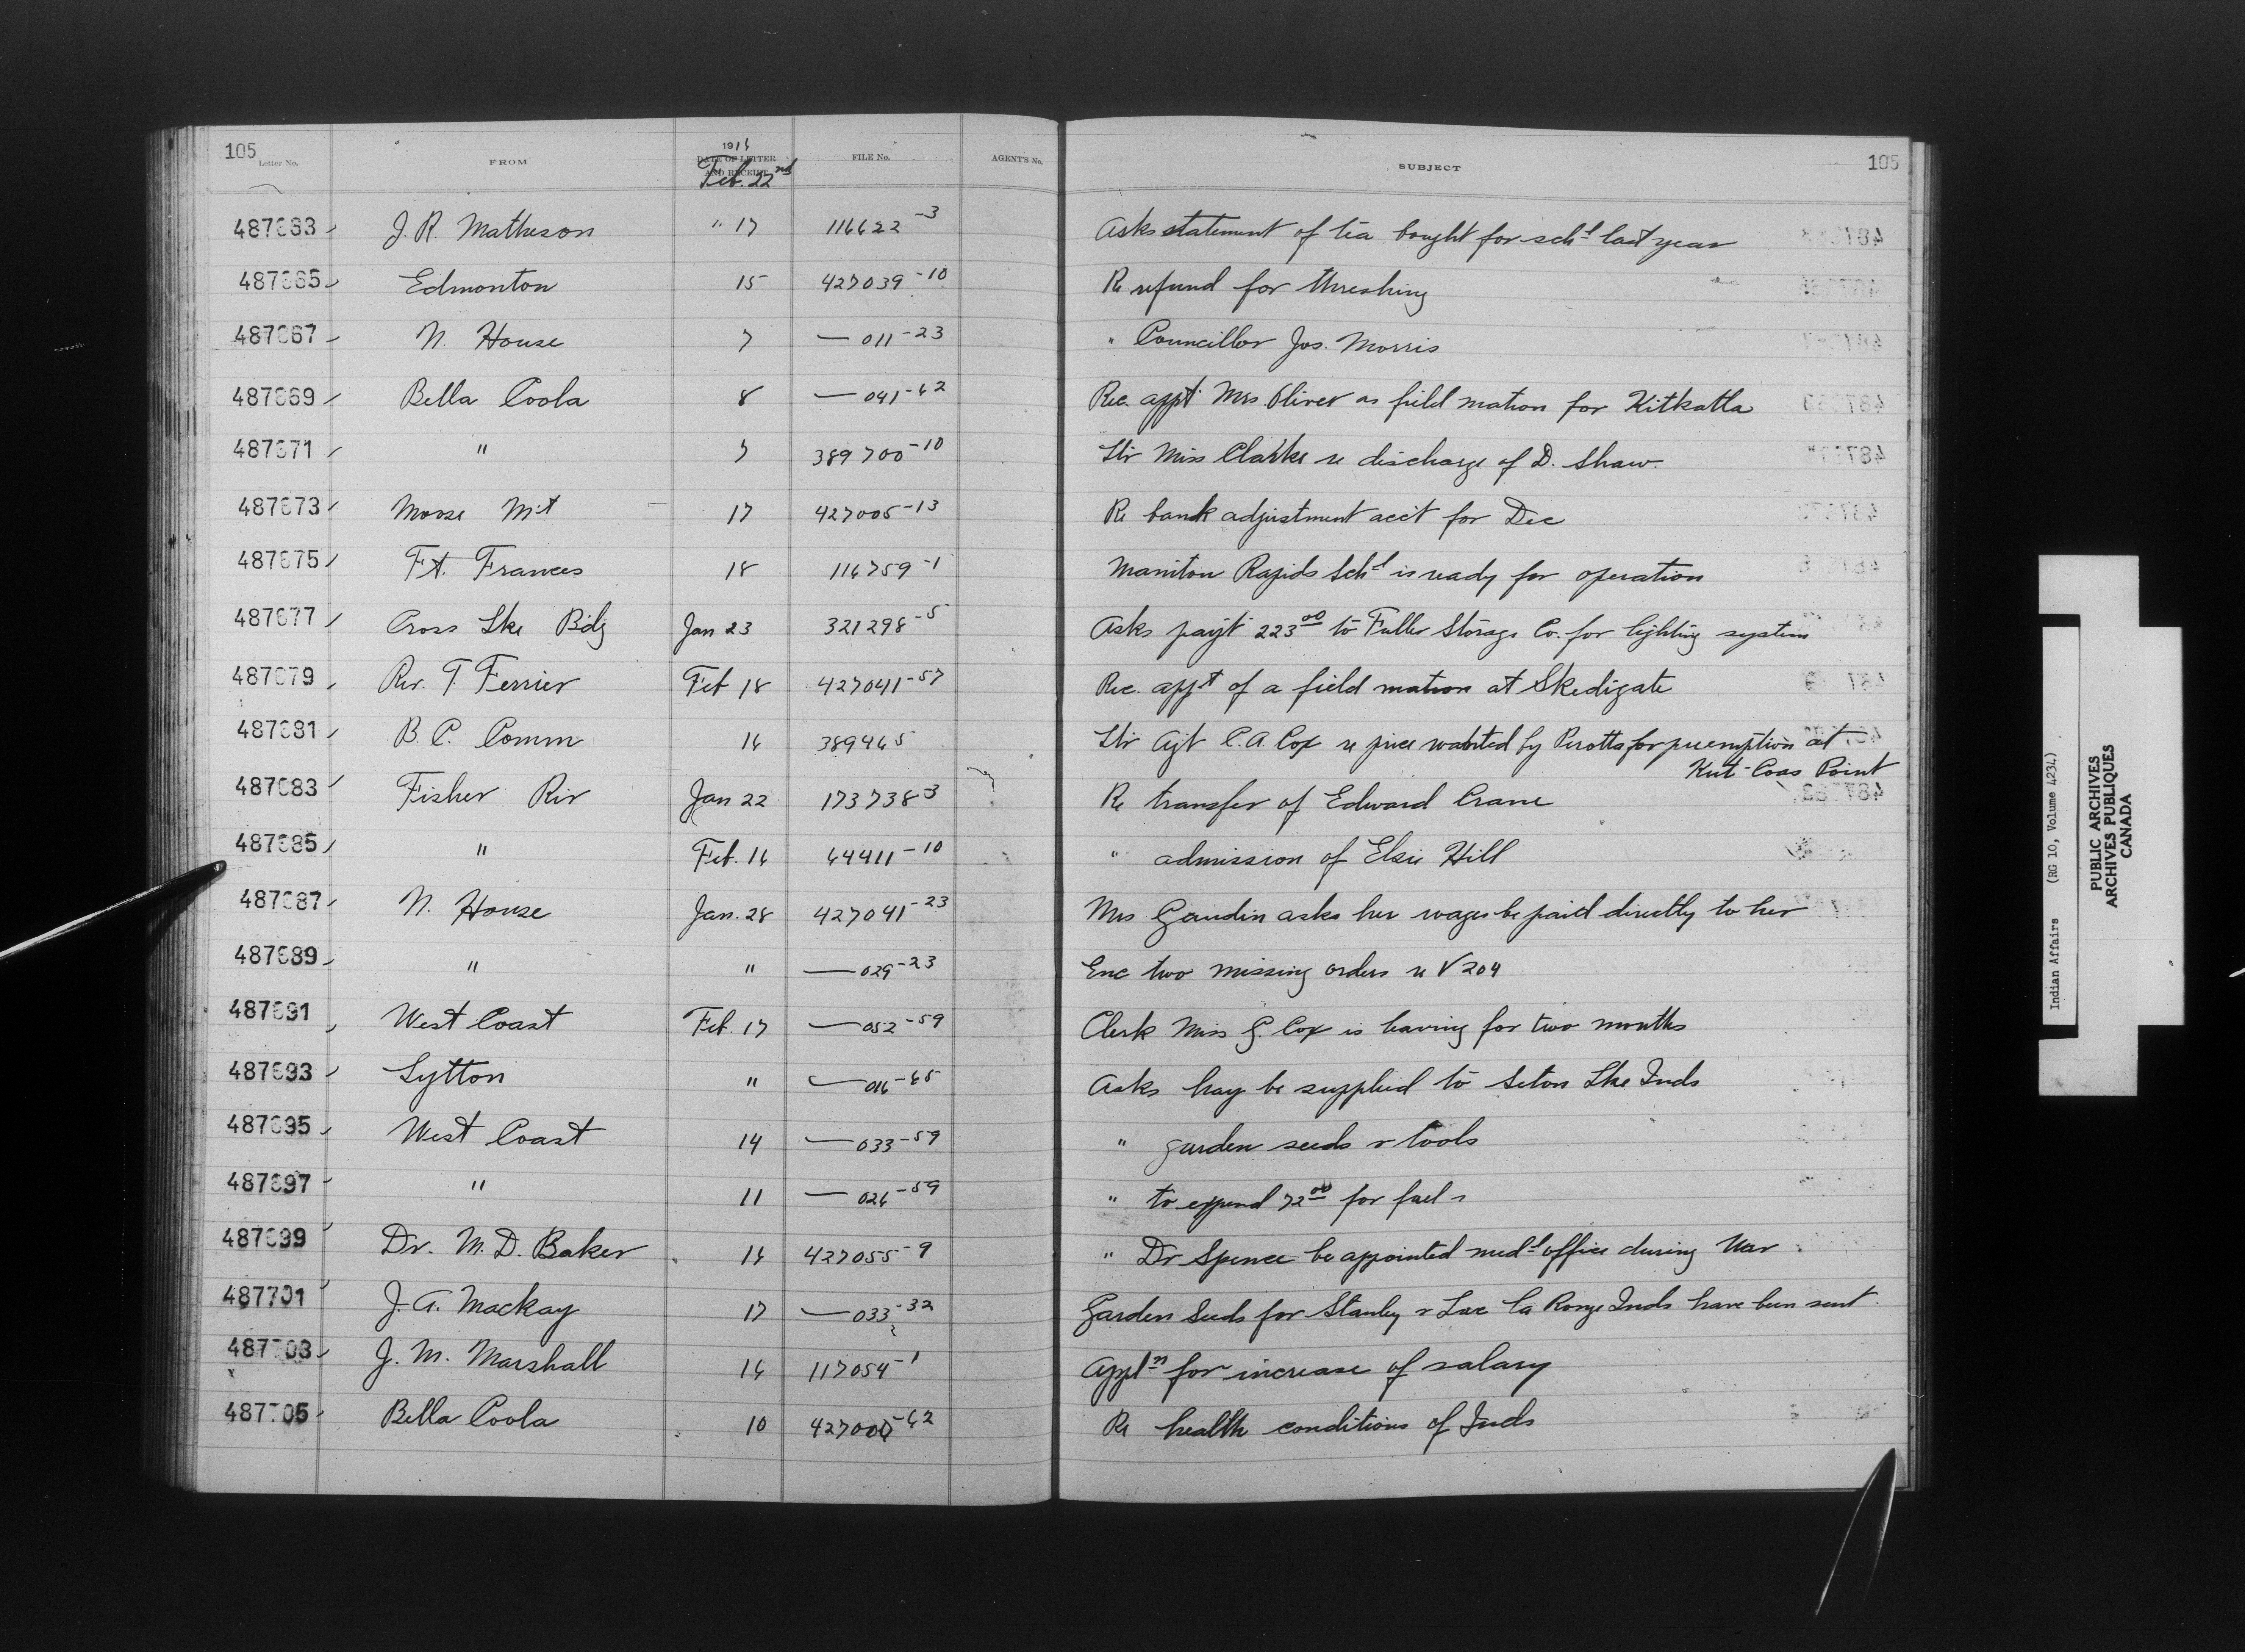 105 Letter No. FROM 1916 DATE OF LETTER AND RECEIPT Feb. 22nd FILE No. AGENT'S No. SUBJECT 105
487663 J. R. Matheson " 17 116622-3 Asks statement of tea bought for schl last year
487665 Edmonton 15 427039-10 Re refund for threshing
487667 N. House 7 — 011-23 " Councillor Jos. Morris
487669 Bella Coola 8 — 041-62 Rec. appt Mrs Oliver as field matron for Kitkatla
487671 " 7 389700-10 Ltr Miss Clarke re discharge of D. Shaw.
487673 Moose Mt 17 427005-13 Re bank adjustment acc't for Dec
487675 Ft. Frances 18 116759-1 Manitou Rapids Schl is ready for operation
487677 Cross Lke Bdg Jan 23 321298-5 Asks payt 223.00 to Fuller Storage Co. for lighting system
487679 Rev. T. Ferrier Feb 18 427041-57 Rec. appt of a field matron at Skedigate
487681 B. C. Comm 16 389465 Ltr Agt C. A. Cox re price wanted by Perotts for preemption at
Kut-Coas Point
487683 Fisher Riv Jan 22 173738-3 Re transfer of Edward Crane
487685 " Feb. 16 64411-10 " admission of Elsie Hill
487687 N. House Jan. 28 427041-23 Mrs Gaudin asks her wages be paid directly to her
487689 " " — 029-23 Enc two missing orders re V 204
487691 West Coast Feb. 17 — 052-59 Clerk Miss G. Cox is leaving for two months
487693 Lytton " — 016-65 Asks hay be supplied to Seton Lke Inds
487695 West Coast 14 — 033-59 " garden seeds & tools
487697 " 11 — 026-59 " to expend 72.00 for fuel
487699 Dr. M. D. Baker 16 427055-9 " Dr Spence be appointed medl office during War
487701 J. A. Mackay 17 — 033-32 Garden Seeds for Stanley & Lac la Ronge Inds have been sent.
487703 J. M. Marshall 16 117054-1 Appln for increase of salary
487705 Bella Coola 10 427000-62 Re health conditions of Inds
Indian Affairs (RG 10, Volume 4234)
PUBLIC ARCHIVES
ARCHIVES PUBLIQUES
CANADA